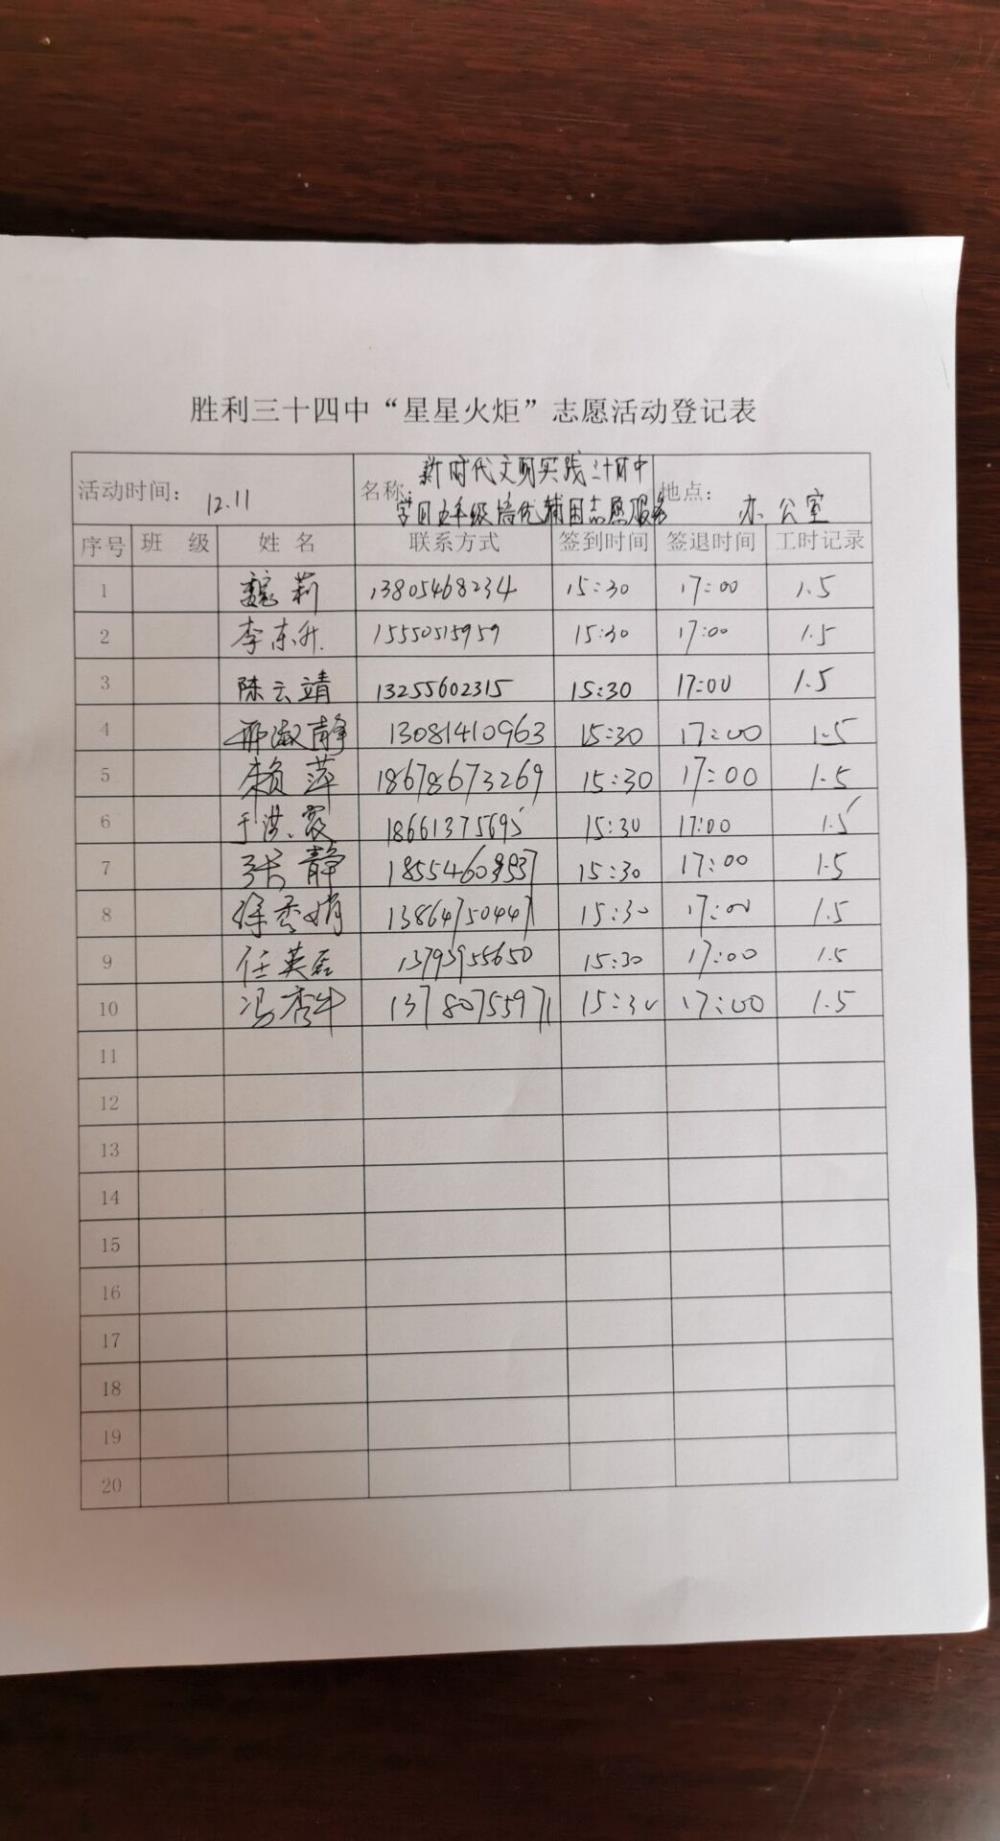 胜利三十四中“星星火炬”志愿活动登记表
活动时间： 12.11 名称： 新时代文明实践三十四中 地点： 办公室
学四五年级培优辅困志愿服务
序号 班 级 姓 名 联系方式 签到时间 签退时间 工时记录
1 魏莉 13805468234 15:30 17:00 1.5
2 李东升 15550515959 15:30 17:00 1.5
3 陈云靖 13255602315 15:30 17:00 1.5
4 邢淑静 13081410963 15:30 17:00 1.5
5 赖萍 18678673269 15:30 17:00 1.5
6 于洪霞 18661375695 15:30 17:00 1.5
7 张静 15:30 17:00 1.5
8 徐秀娟 13864750447 15:30 17:00 1.5
9 任英磊 13793955650 15:30 17:00 1.5
10 冯秀华 13780755971 15:30 17:00 1.5
11
12
13
14
15
16
17
18
19
20